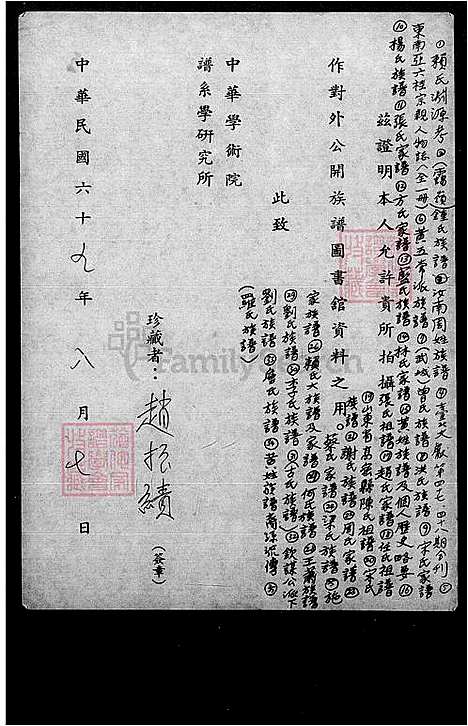 ①賴氏淵源考②(霞嶺)鍾氏族譜③汝南周姓族譜④臺北文獻第四七、四十八期合刊⑤
東南亞六桂宗親人物誌(全一冊)⑥黃五常派族譜⑦(武城)曾氏族譜⑧洪氏族譜⑨宋氏家譜
⑩楊氏族譜⑪張氏家譜⑫方氏家譜⑬藍氏族譜⑭林氏家譜⑮黃姓族譜及個人歷史略要⑯
茲證明本人允許貴所拍攝
張氏祖譜⑰趙氏家譜⑱任氏祖譜
⑲山東省高密縣陳氏祖譜⑳宋氏
族譜㉑謝氏族譜㉒周氏家譜㉓
作對外公開族譜圖書館資料之用。
蔡氏家譜㉔梁氏族譜㉕施
家族譜㉖賴氏大族譜及家譜㉗何氏族譜㉘王蕭族譜
㉙劉氏族譜㉚李氏族譜㉛古氏族譜㉜欽謀公派下
劉氏族譜㉝詹氏族譜㉞黃姓族譜
(羅氏族譜)
此致
中華學術院
譜系學研究所
珍藏者：趙振績
(簽章)
中華民國六十九年八月七日
FamilySearch